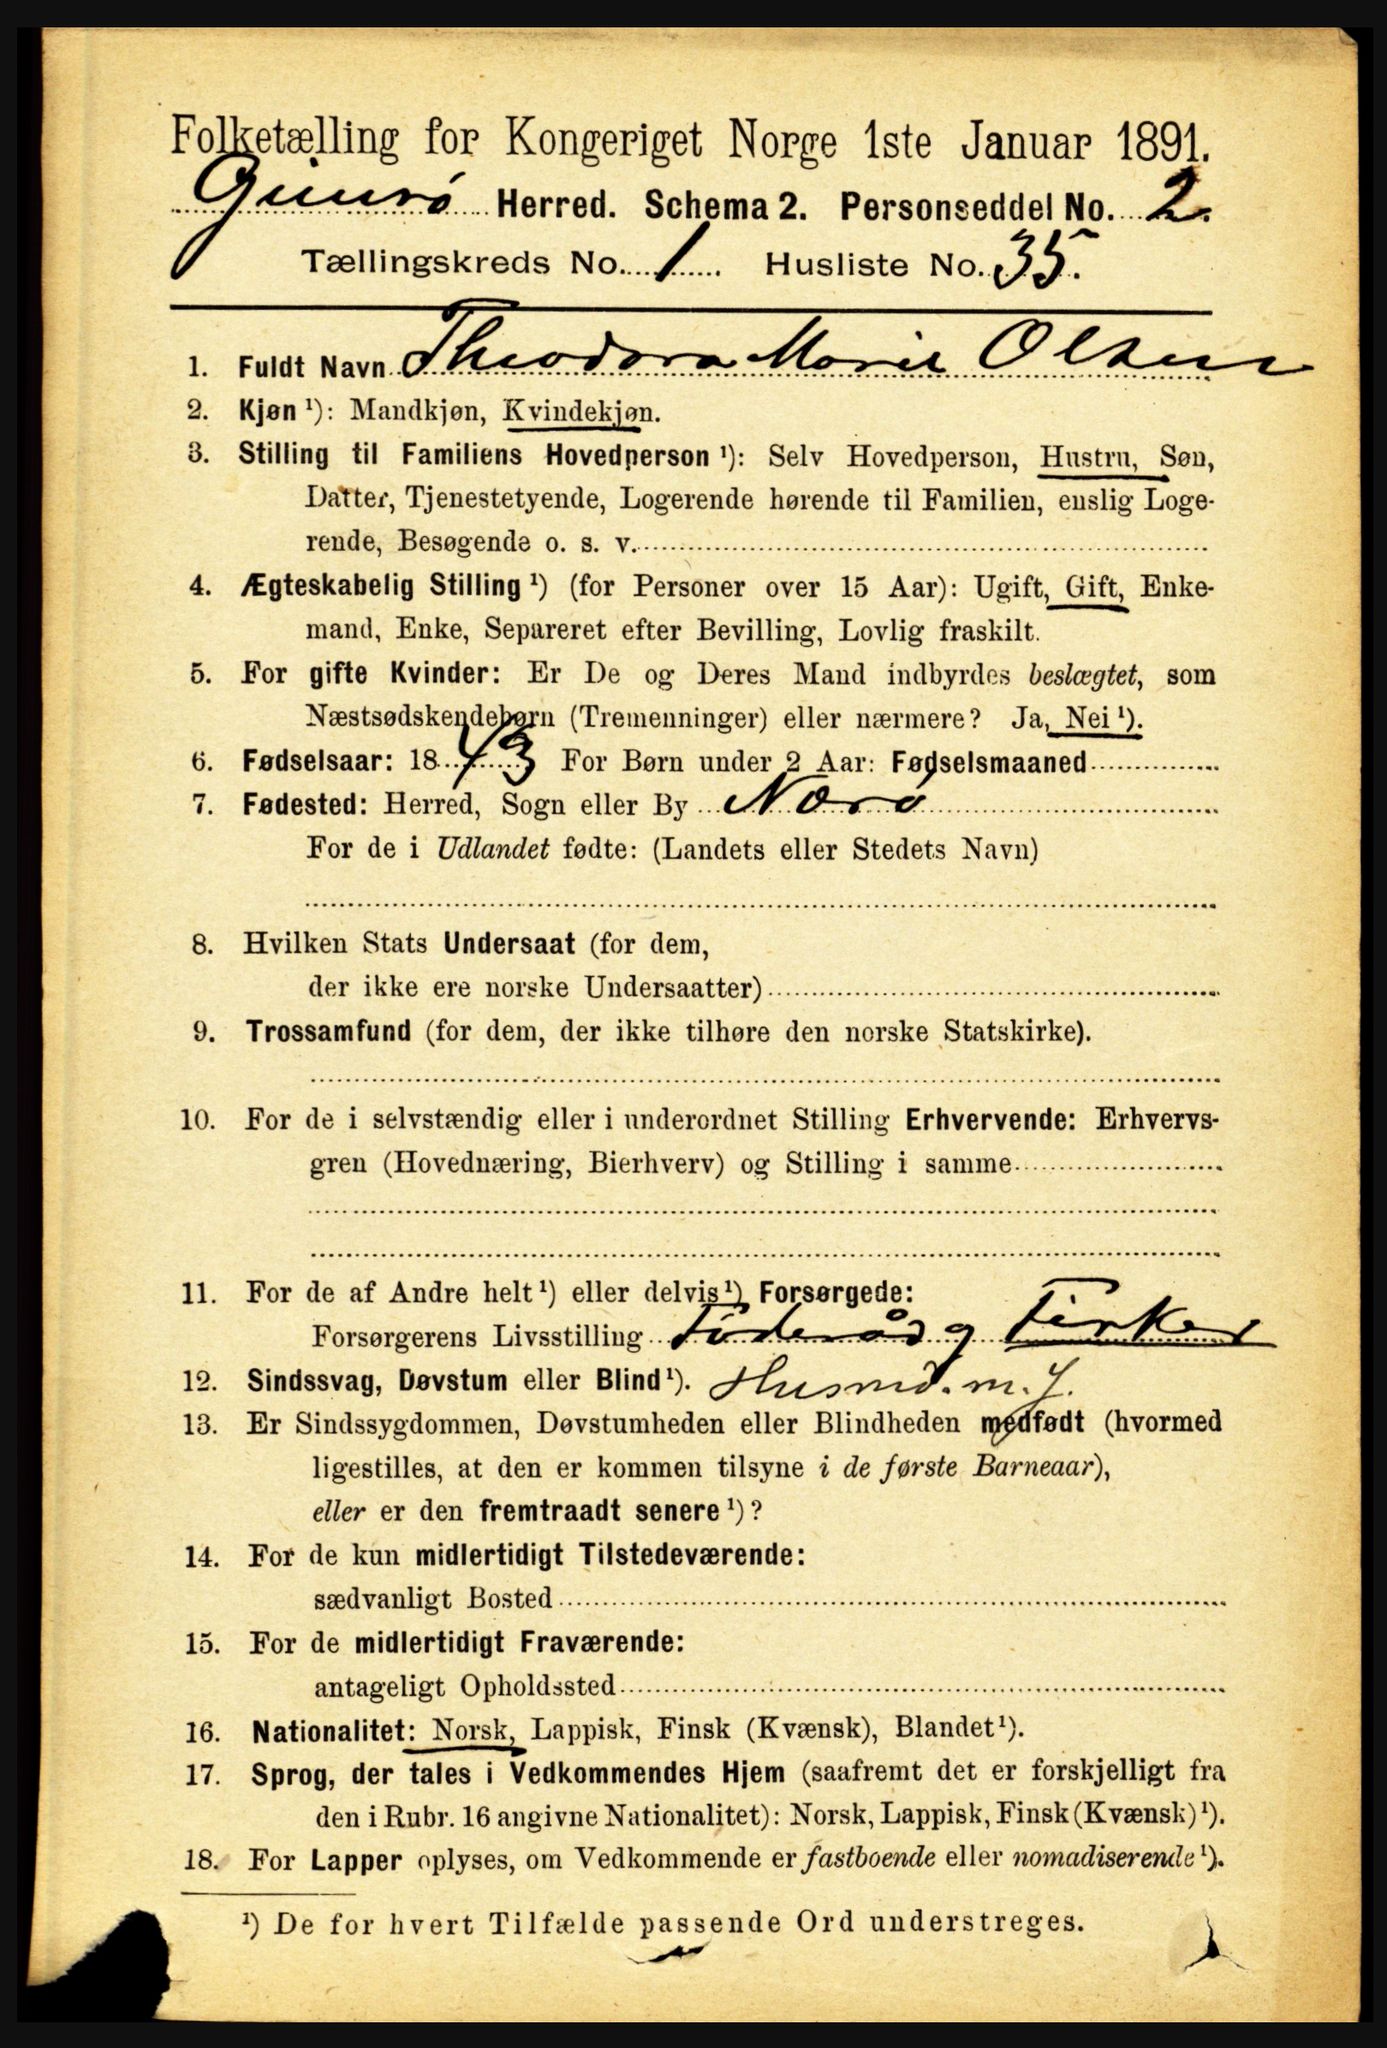 Folketælling for Kongeriget Norge 1ste Januar 1891.
Herred. Schema 2. Personseddel No. 2.
Tællingskreds No. 1 Husliste No. 35.
1. Fuldt Navn Theodora Marie Olsen
2. Kjøn ¹): Mandkjøn, Kvindekjøn.
3. Stilling til Familiens Hovedperson ¹): Selv Hovedperson, Hustru, Søn,
Datter, Tjenestetyende, Logerende hørende til Familien, enslig Loge-
rende, Besøgende o. s. v.
4. Ægteskabelig Stilling ¹) (for Personer over 15 Aar): Ugift, Gift, Enke-
mand, Enke, Separeret efter Bevilling, Lovlig fraskilt.
5. For gifte Kvinder: Er De og Deres Mand indbyrdes beslægtet, som
Næstsødskendebørn (Tremenninger) eller nærmere? Ja, Nei ¹).
6. Fødselsaar: 1843 For Børn under 2 Aar: Fødselsmaaned
7. Fødested: Herred, Sogn eller By Nærø
For de i Udlandet fødte: (Landets eller Stedets Navn)
8. Hvilken Stats Undersaat (for dem,
der ikke ere norske Undersaatter)
9. Trossamfund (for dem, der ikke tilhøre den norske Statskirke).
10. For de i selvstændig eller i underordnet Stilling Erhvervende: Erhvervs-
gren (Hovednæring, Bierhverv) og Stilling i samme
11. For de af Andre helt ¹) eller delvis ¹) Forsørgede:
Forsørgerens Livsstilling
12. Sindssvag, Døvstum eller Blind ¹). Husmd. m. J.
13. Er Sindssygdommen, Døvstumheden eller Blindheden medfødt (hvormed
ligestilles, at den er kommen tilsyne i de første Barneaar),
eller er den fremtraadt senere ¹)?
14. For de kun midlertidigt Tilstedeværende:
sædvanligt Bosted
15. For de midlertidigt Fraværende:
antageligt Opholdssted
16. Nationalitet: Norsk, Lappisk, Finsk (Kvænsk), Blandet ¹).
17. Sprog, der tales i Vedkommendes Hjem (saafremt det er forskjelligt fra
den i Rubr. 16 angivne Nationalitet): Norsk, Lappisk, Finsk (Kvænsk) ¹).
18. For Lapper oplyses, om Vedkommende er fastboende eller nomadiserende ¹).
¹) De for hvert Tilfælde passende Ord understreges.